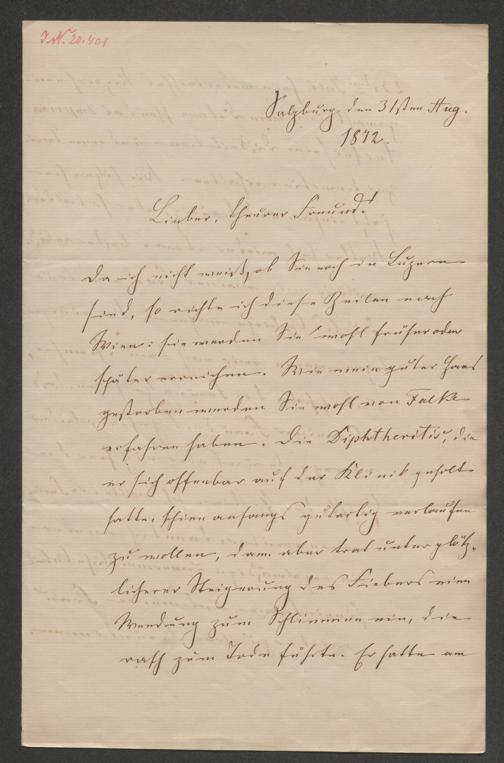 J.N. 20.401
Salzburg, den 31sten Aug.
1872.
Lieber, theurer Freund!
Da ich nicht weiß, ob Sie noch in Luzern
sind, so richte ich diese Zeilen nach
Wien: sie werden Sie wohl früher oder
später erreichen. Wie mein guter Hans
gestorben werden Sie wohl von Falke
erfahren haben. Die Diphtheritis, die
er sich offenbar auf der Klinik geholt
hatte, schien anfangs gutartig verlaufen
zu wollen, dann aber trat unter plötz-
licher Steigerung des Fiebers eine
Wendung zum Schlimmen ein, die
rasch zum Tode führte. Er hatte am